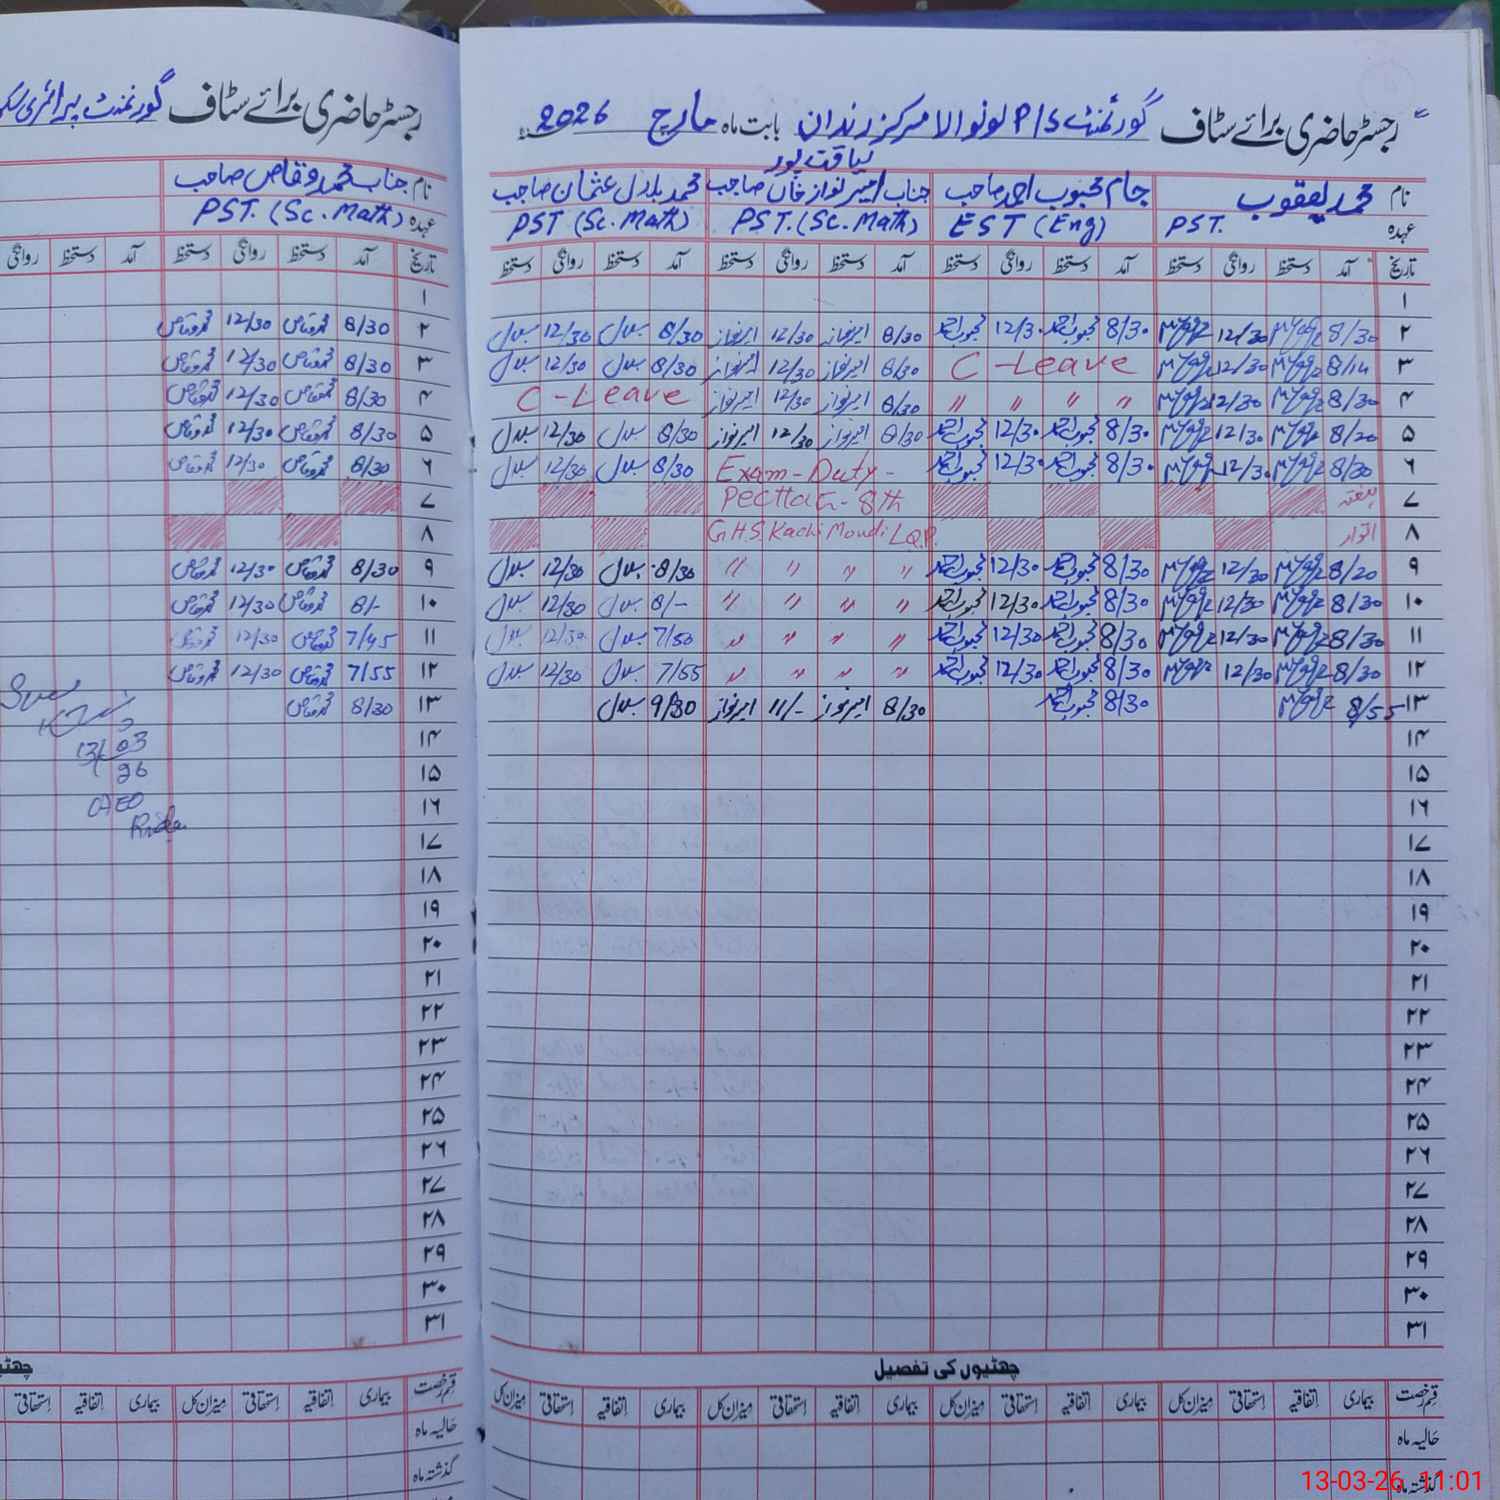 رجسٹر حاضری برائے سٹاف گورنمنٹ P/S لونوالا مرکز رندان بابت ماہ مارچ 2026
لیاقت پور
نام محمد یعقوب جام محبوب احمد صاحب جناب امیر نواز خاں صاحب محمد بلال عثمان صاحب
عہدہ PST. EST (Eng) PST. (Sc. Math) PST (Sc. Math)
تاریخ آمد دستخط روانگی دستخط آمد دستخط روانگی دستخط آمد دستخط روانگی دستخط آمد دستخط روانگی دستخط
۱
۲ 8/30 12/30 8/30 محبوب احمد 12/30 محبوب احمد 8/30 امیر نواز 12/30 امیر نواز 8/30 بلال 12/30 بلال
۳ 8/14 12/30 C-Leave 8/30 امیر نواز 12/30 امیر نواز 8/30 بلال 12/30 بلال
۴ 8/30 12/30 " " " " 8/30 امیر نواز 12/30 امیر نواز C-Leave
۵ 8/20 12/30 8/30 محبوب احمد 12/30 محبوب احمد 8/30 امیر نواز 12/30 امیر نواز 8/30 بلال 12/30 بلال
۶ 8/30 12/30 8/30 محبوب احمد 12/30 محبوب احمد Exam-Duty- 8/30 بلال 12/30 بلال
۷ ہفتہ 8th
۸ اتوار G.H.S. Kachi Mandi L.Q.P.
۹ 8/20 12/30 8/30 محبوب احمد 12/30 محبوب احمد " " " " 8/30 بلال 12/30 بلال
۱۰ 8/30 12/30 8/30 محبوب احمد 12/30 محبوب احمد " " " " 8/- بلال 12/30 بلال
۱۱ 8/30 12/30 8/30 محبوب احمد 12/30 محبوب احمد " " " " 7/50 بلال 12/30 بلال
۱۲ 8/30 12/30 8/30 محبوب احمد 12/30 محبوب احمد " " " " 7/55 بلال 12/30 بلال
۱۳ 8/55 8/30 محبوب احمد 8/30 امیر نواز 11/- امیر نواز 9/30 بلال
۱۴
۱۵
۱۶
۱۷
۱۸
۱۹
۲۰
۲۱
۲۲
۲۳
۲۴
۲۵
۲۶
۲۷
۲۸
۲۹
۳۰
۳۱
چھٹیوں کی تفصیل
قسم رخصت بیماری اتفاقیہ استحقاقی میزان کل بیماری اتفاقیہ استحقاقی میزان کل بیماری اتفاقیہ استحقاقی میزان کل بیماری اتفاقیہ استحقاقی میزان کل
حالیہ ماہ
گذشتہ ماہ
رجسٹر حاضری برائے سٹاف گورنمنٹ پرائمری
نام جناب محمد وقاص صاحب
عہدہ PST. (Sc. Math)
تاریخ آمد دستخط روانگی دستخط آمد دستخط روانگی
۱
۲ 8/30 محمد وقاص 12/30 محمد وقاص
۳ 8/30 محمد وقاص 12/30 محمد وقاص
۴ 8/30 محمد وقاص 12/30 محمد وقاص
۵ 8/30 محمد وقاص 12/30 محمد وقاص
۶ 8/30 محمد وقاص 12/30 محمد وقاص
۷
۸
۹ 8/30 محمد وقاص 12/30 محمد وقاص
۱۰ 8/- محمد وقاص 12/30 محمد وقاص
۱۱ 7/45 محمد وقاص 12/30 محمد وقاص
۱۲ 7/55 محمد وقاص 12/30 محمد وقاص
۱۳ 8/30 محمد وقاص
۱۴
۱۵
۱۶
۱۷
۱۸
۱۹
۲۰
۲۱
۲۲
۲۳
۲۴
۲۵
۲۶
۲۷
۲۸
۲۹
۳۰
۳۱
13/03
26
AEO
قسم رخصت بیماری اتفاقیہ استحقاقی میزان کل بیماری اتفاقیہ استحقاقی
حالیہ ماہ
گذشتہ ماہ
13-03-26, 11:01